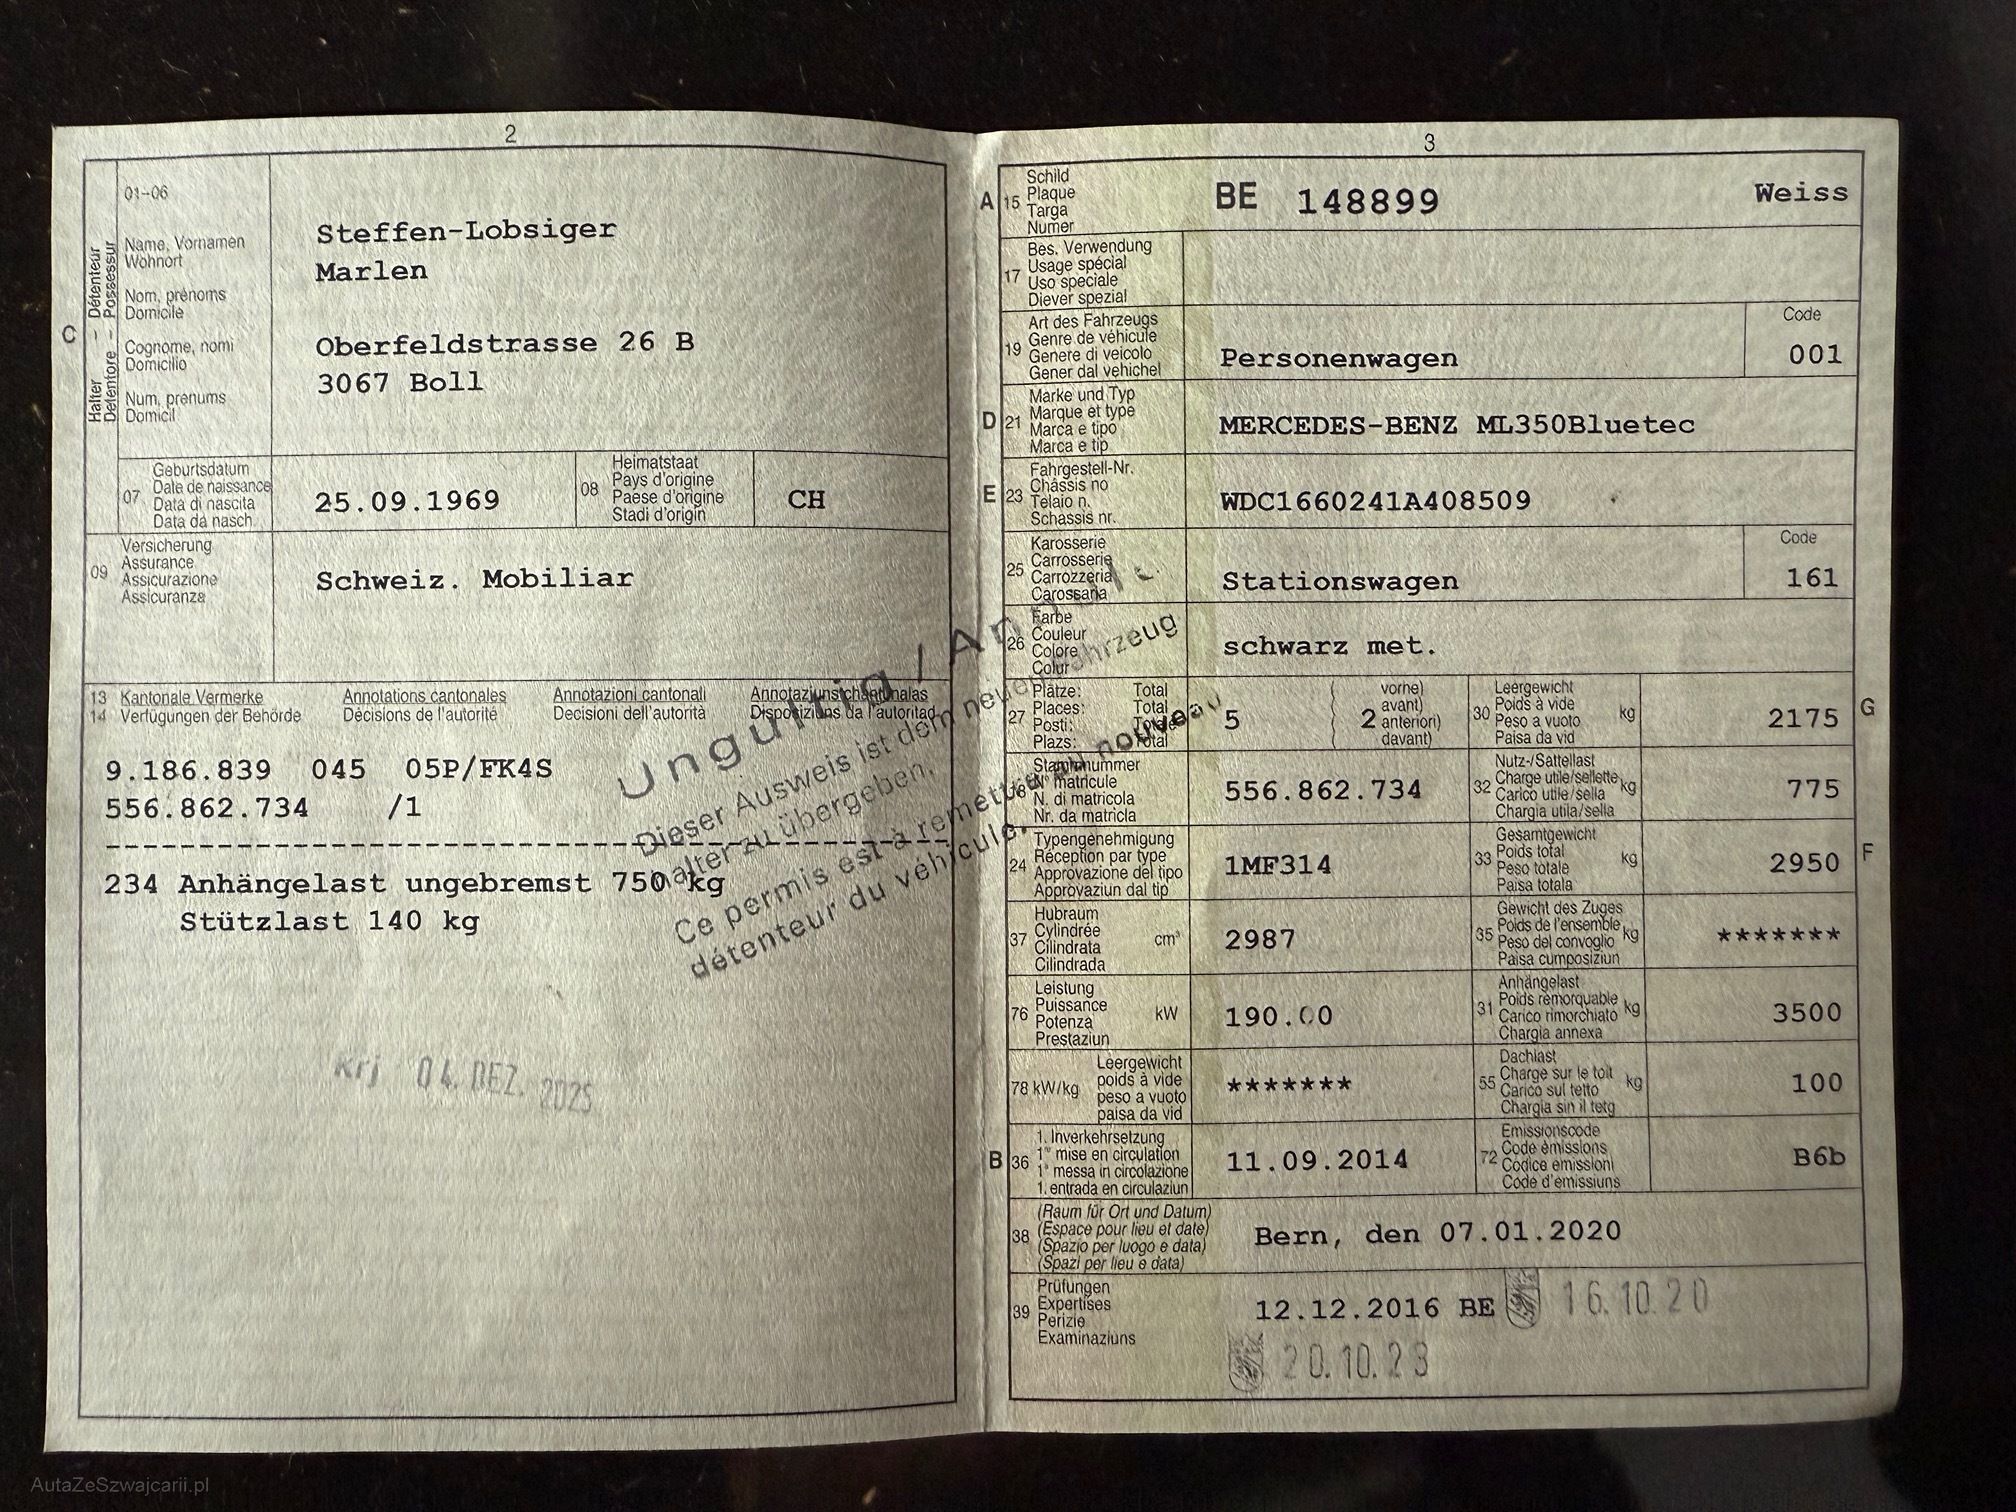 2
C
Halter – Détenteur
Detentore – Possessur
01–06
Name, Vornamen
Wohnort
Nom, prénoms
Domicile
Cognome, nomi
Domicilio
Num, prenums
Domicil
Steffen-Lobsiger
Marlen
Oberfeldstrasse 26 B
3067 Boll
07
Geburtsdatum
Date de naissance
Data di nascita
Data da nasch.
25.09.1969
08
Heimatstaat
Pays d'origine
Paese d'origine
Stadi d'origin
CH
09
Versicherung
Assurance
Assicurazione
Assicuranza
Schweiz. Mobiliar
13 Kantonale Vermerke Annotations cantonales Annotazioni cantonali Annotaziuns chantunalas
14 Verfügungen der Behörde Décisions de l'autorité Decisioni dell'autorità Disposiziuns da l'autoritad
9.186.839 045 05P/FK4S
556.862.734 /1
234 Anhängelast ungebremst 750 kg
Stützlast 140 kg
Ungültig / Annulé
Dieser Ausweis ist dem neuen Fahrzeug
halter zu übergeben.
Ce permis est à remettre au nouveau
détenteur du véhicule.
Krj 04. DEZ. 2025
3
A 15
Schild
Plaque
Targa
Numer
BE 148899 Weiss
17
Bes. Verwendung
Usage spécial
Uso speciale
Diever spezial
19
Art des Fahrzeugs
Genre de véhicule
Genere di veicolo
Gener dal vehichel
Personenwagen
Code
001
D 21
Marke und Typ
Marque et type
Marca e tipo
Marca e tip
MERCEDES-BENZ ML350Bluetec
E 23
Fahrgestell-Nr.
Châssis no
Telaio n.
Schassis nr.
WDC1660241A408509
25
Karosserie
Carrosserie
Carrozzeria
Carossaria
Stationswagen
Code
161
26
Farbe
Couleur
Colore
Colur
schwarz met.
27
Plätze: Total
Places: Total
Posti: Totale
Plazs: Total
5
2
vorne)
avant)
anteriori)
davant)
30
Leergewicht
Poids à vide
Peso a vuoto
Paisa da vid
kg
2175
G
18
Stammnummer
N° matricule
N. di matricola
Nr. da matricla
556.862.734
32
Nutz-/Sattellast
Charge utile/sellette
Carico utile/sella
Chargia utila/sella
kg
775
24
Typengenehmigung
Réception par type
Approvazione del tipo
Approvaziun dal tip
1MF314
33
Gesamtgewicht
Poids total
Peso totale
Paisa totala
kg
2950
F
37
Hubraum
Cylindrée
Cilindrata
Cilindrada
cm³
2987
35
Gewicht des Zuges
Poids de l'ensemble
Peso del convoglio
Paisa cumposiziun
kg
*******
76
Leistung
Puissance
Potenza
Prestaziun
kW
190.00
31
Anhängelast
Poids remorquable
Carico rimorchiato
Chargia annexa
kg
3500
78 kW/kg
Leergewicht
poids à vide
peso a vuoto
paisa da vid
*******
55
Dachlast
Charge sur le toit
Carico sul tetto
Chargia sin il tetg
kg
100
B 36
1. Inverkehrsetzung
1re mise en circulation
1a messa in circolazione
1. entrada en circulaziun
11.09.2014
72
Emissionscode
Code émissions
Codice emissioni
Code d'emissiuns
B6b
38
(Raum für Ort und Datum)
(Espace pour lieu et date)
(Spazio per luogo e data)
(Spazi per lieu e data)
Bern, den 07.01.2020
39
Prüfungen
Expertises
Perizie
Examinaziuns
12.12.2016 BE 16.10.20
20.10.23
AutaZeSzwajcarii.pl